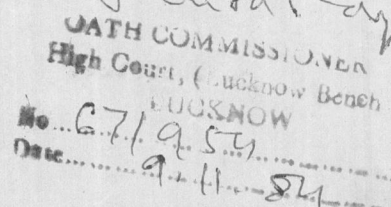 OATH COMMISSIONER
High Court, (Lucknow Bench
LUCKNOW
No...671954
Date...9.11.84